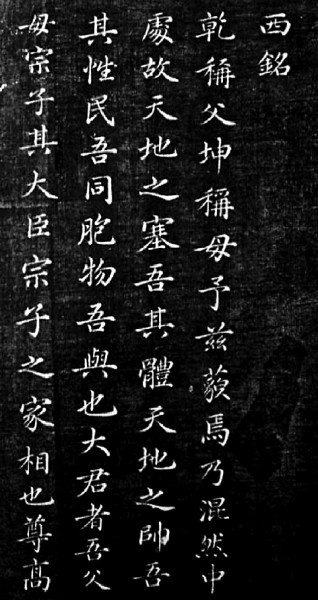 西銘
乾稱父坤稱母予茲藐焉乃混然中
處故天地之塞吾其體天地之帥吾
其性民吾同胞物吾與也大君者吾父
母宗子其大臣宗子之家相也尊高